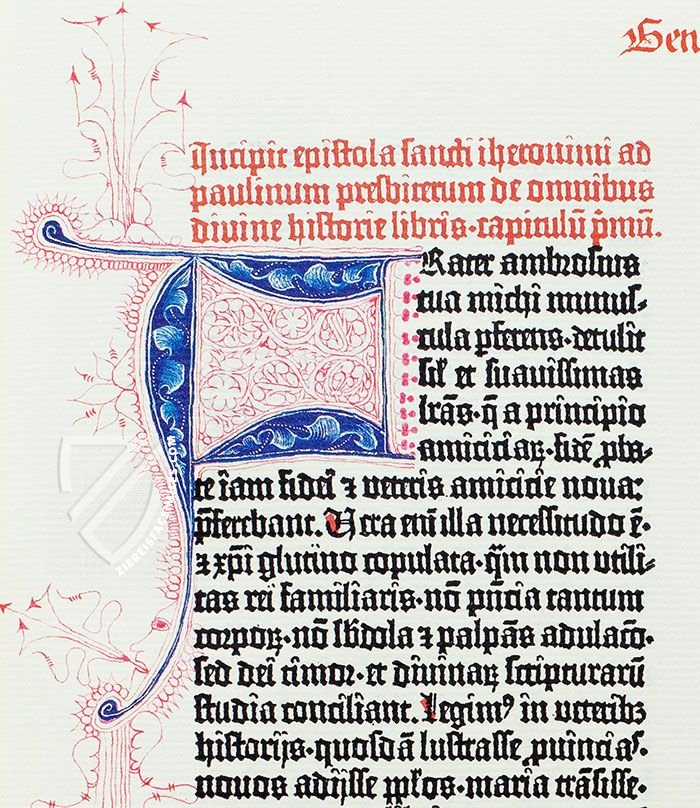 Gen
Incipit epistola sancti iheronimi ad
paulinum presbiterum de omnibus
divine historie libris·capitulū p̄mū.
FRater ambrosius
tua michi munus-
cula ꝑferens·detulit
sil̛ et suavissimas
lr̄as·q̄ a principio
amiciciaꝝ·fidē ꝓba-
te iam fidei ⁊ veteris amicicie nova:
p̄ferebant. Vera eni̅ illa necessitudo ē·
⁊ xp̄i glutino copulata·qm̄ non utili-
tas rei familiaris·nō p̄ncia tantum
corpoꝝ·nō sb̄dola ⁊ palpās adulacō·
sed dei timor·et divinaꝝ scripturarū
studia conciliant. Legimꝰ in veteribꝫ
historijs·quosdā lustrasse ꝓuincias·
novos adijsse pp̄los·maria trāsisse·
ZIEREIS FACSIMILES.COM